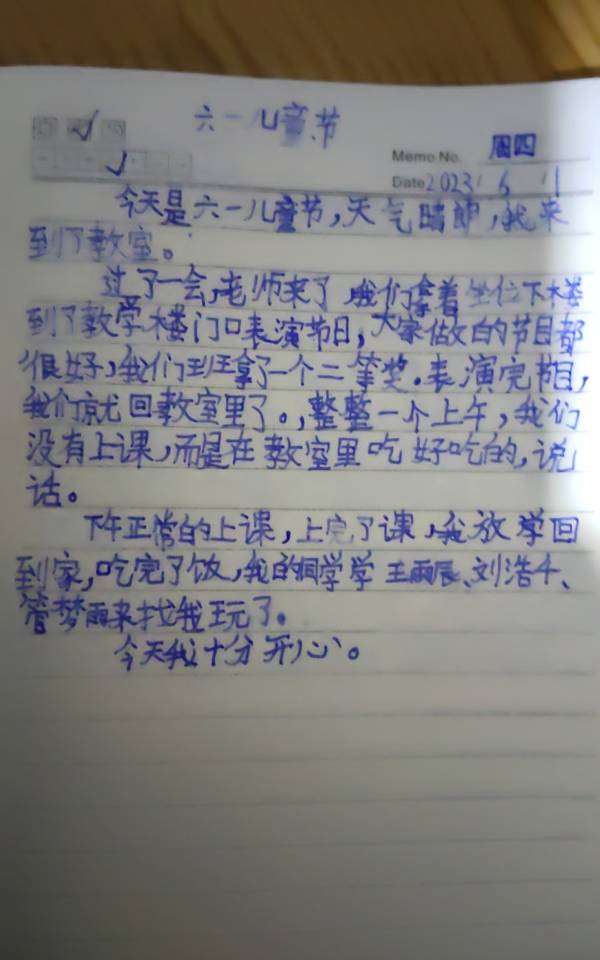 六一儿童节
Memo No. 周四
Date 2023 6 1
今天是六一儿童节，天气晴朗，我来
到了教室。
过了一会，老师来了，我们拿着坐位下楼
到了教学楼门口表演节目，大家做的节目都
很好，我们班拿了一个二等奖。表演完节目，
我们就回教室里了。，整整一个上午，我们
没有上课，而是在教室里吃好吃的，说
话。
下午正常的上课，上完了课，我放学回
到家，吃完了饭，我的同学学王雨辰、刘浩千、
管梦雨来找我玩了。
今天我十分开心。